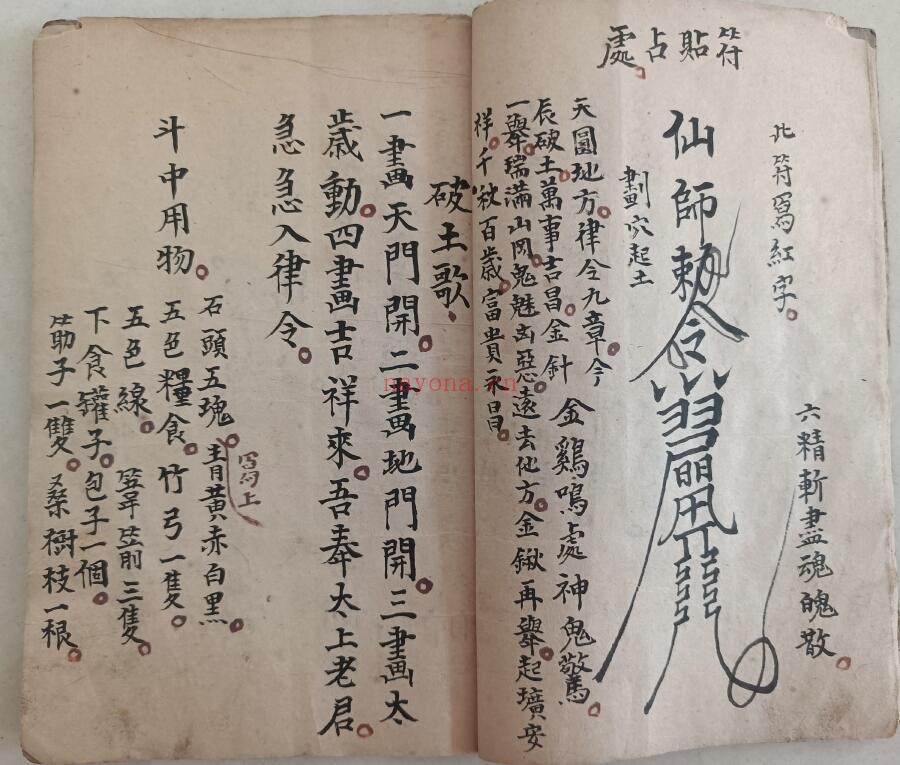 符貼占處。
此符寫紅字。
六精斬盡魂魄散。
仙師勅令
劃穴起土
金鷄鳴處神鬼驚。
天圓地方。律令九章。今
辰破土。萬事吉昌。金針
一舉。瑞滿山岡。鬼魅凶惡。遠去他方。金鍬再舉。起壙安
祥。千秋百歲。富貴永昌。
破土歌。
一畫天門開。二畫地門開。三畫太
歲動。四畫吉祥來。吾奉太上老君。
急急入律令。
斗中用物。
石頭五塊。青黃赤白黑。
寫上
五色糧食。竹弓一隻。
五色線。箭三隻。
下食罐子。包子一個。
筯子一雙。桑樹枝一根。
nayona.cn